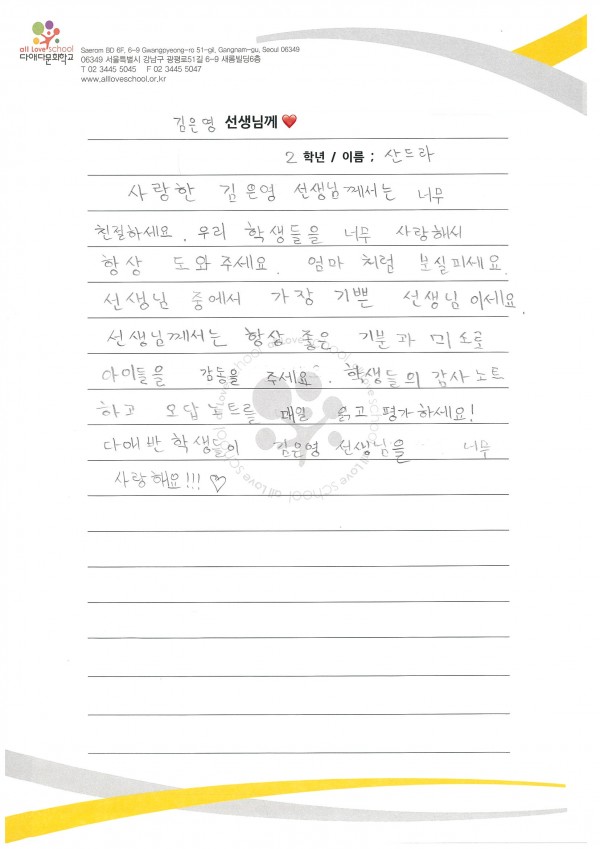 all Love school
다애다문화학교
Saerom BD 6F, 6-9 Gwangpyeong-ro 51-gil, Gangnam-gu, Seoul 06349
06349 서울특별시 강남구 광평로51길 6-9 새롬빌딩6층
T 02 3445 5045 F 02 3445 5047
www.allloveschool.or.kr
김은영 선생님께❤️
2 학년 / 이름 ; 산드라
사랑한 김은영 선생님께서는 너무
친절하세요. 우리 학생들을 너무 사랑해서
항상 도와주세요. 엄마 처럼 분실피세요.
선생님 중에서 가장 기쁜 선생님 이세요.
선생님께서는 항상 좋은 기분과 미소로
아이들을 감동을 주세요^. 학생들의 감사노트
하고 오답노트를 매일 읽고 평가하세요!
다애반 학생들이 김은영 선생님을 너무
사랑해요!!! ♡
all Love school all Love school all Love school